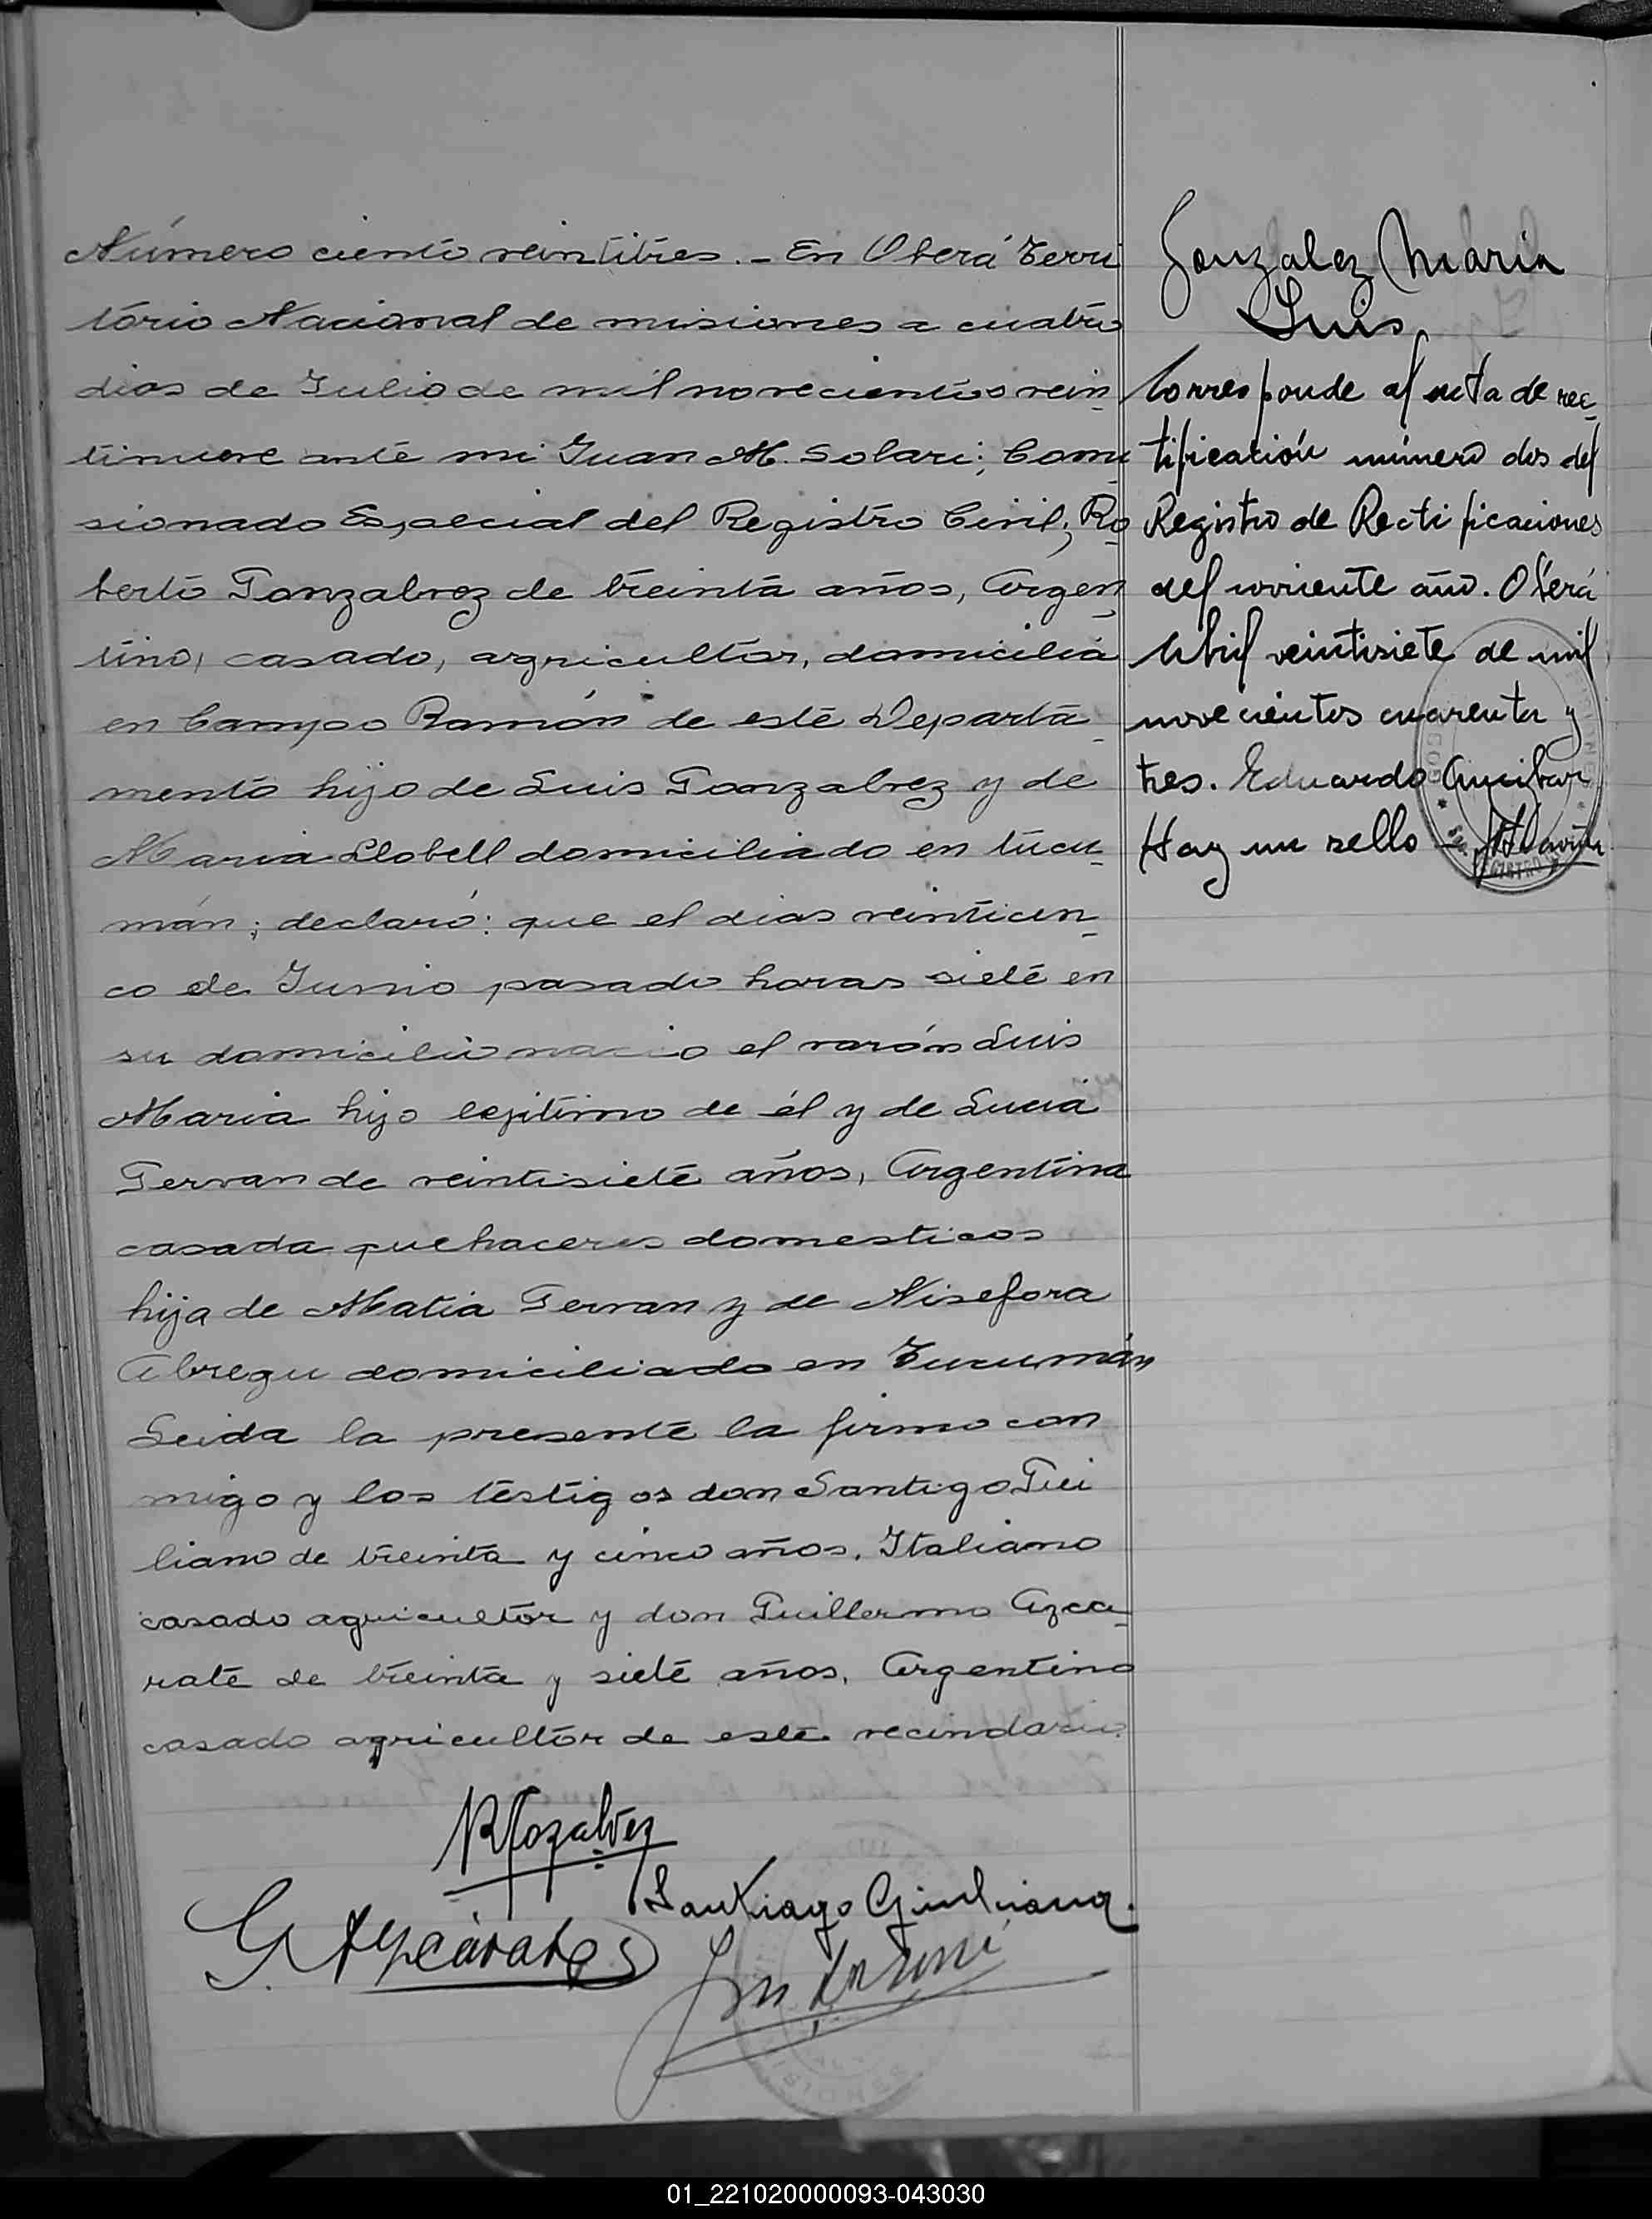 Número ciento veintitres. - En Oberá Terri
torio Nacional de misiones a cuatro
dias de Julio de mil novecientos vein-
tinueve ante mi Juan M. Solari; Comi-
sionado Especial del Registro Civil; Ro-
berto Gonzalvez de treinta años, Argen-
tino, casado, agricultor, domicilia
en Campo Ramón de este Departa-
mento hijo de Luis Gonzalvez y de
Maria Llobell domiciliado en tucu-
mán; declaró: que el dias veinticin-
co de Junio pasado horas siete en
su domicilio nacio el varón Luis
Maria hijo legitimo de él y de Lucia
Terran de veintisiete años, Argentina
casada quehaceres domesticos
hija de Matia Terran y de Nisefora
Abregu domiciliado en Tucumán
Leida la presente la firmo con
migo y los testigos don Santigo Giu
liano de treinta y cinco años, Italiano
casado agricultor y don Guillermo Azca-
rate de treinta y siete años, Argentino
casado agricultor de este vecindario.
R Gozalvez
Santiago Giuliano.
G. Azcárate
Gonzalez Maria
Luis
Corresponde al acta de rec-
tificación número dos del
Registro de Rectificaciones
del corriente año. Oberá
Abril veintisiete de mil
novecientos cuarenta y
tres. Eduardo
Hay un sello
01_221020000093-043030